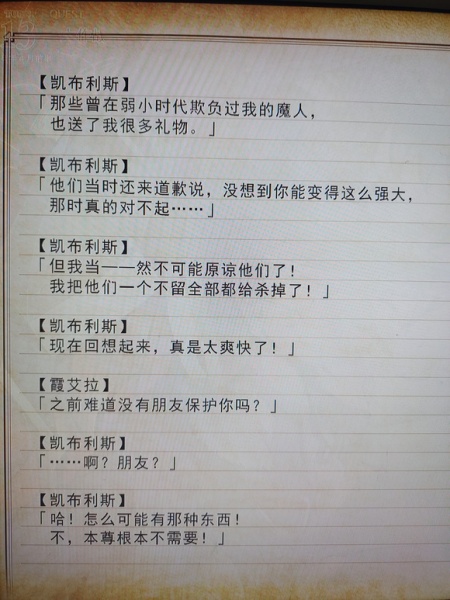 【凯布利斯】
「那些曾在弱小时代欺负过我的魔人，
也送了我很多礼物。」
【凯布利斯】
「他们当时还来道歉说，没想到你能变得这么强大，
那时真的对不起……」
【凯布利斯】
「但我当——然不可能原谅他们了！
我把他们一个不留全部都给杀掉了！」
【凯布利斯】
「现在回想起来，真是太爽快了！」
【霞艾拉】
「之前难道没有朋友保护你吗？」
【凯布利斯】
「……啊？朋友？」
【凯布利斯】
「哈！怎么可能有那种东西！
不，本尊根本不需要！」